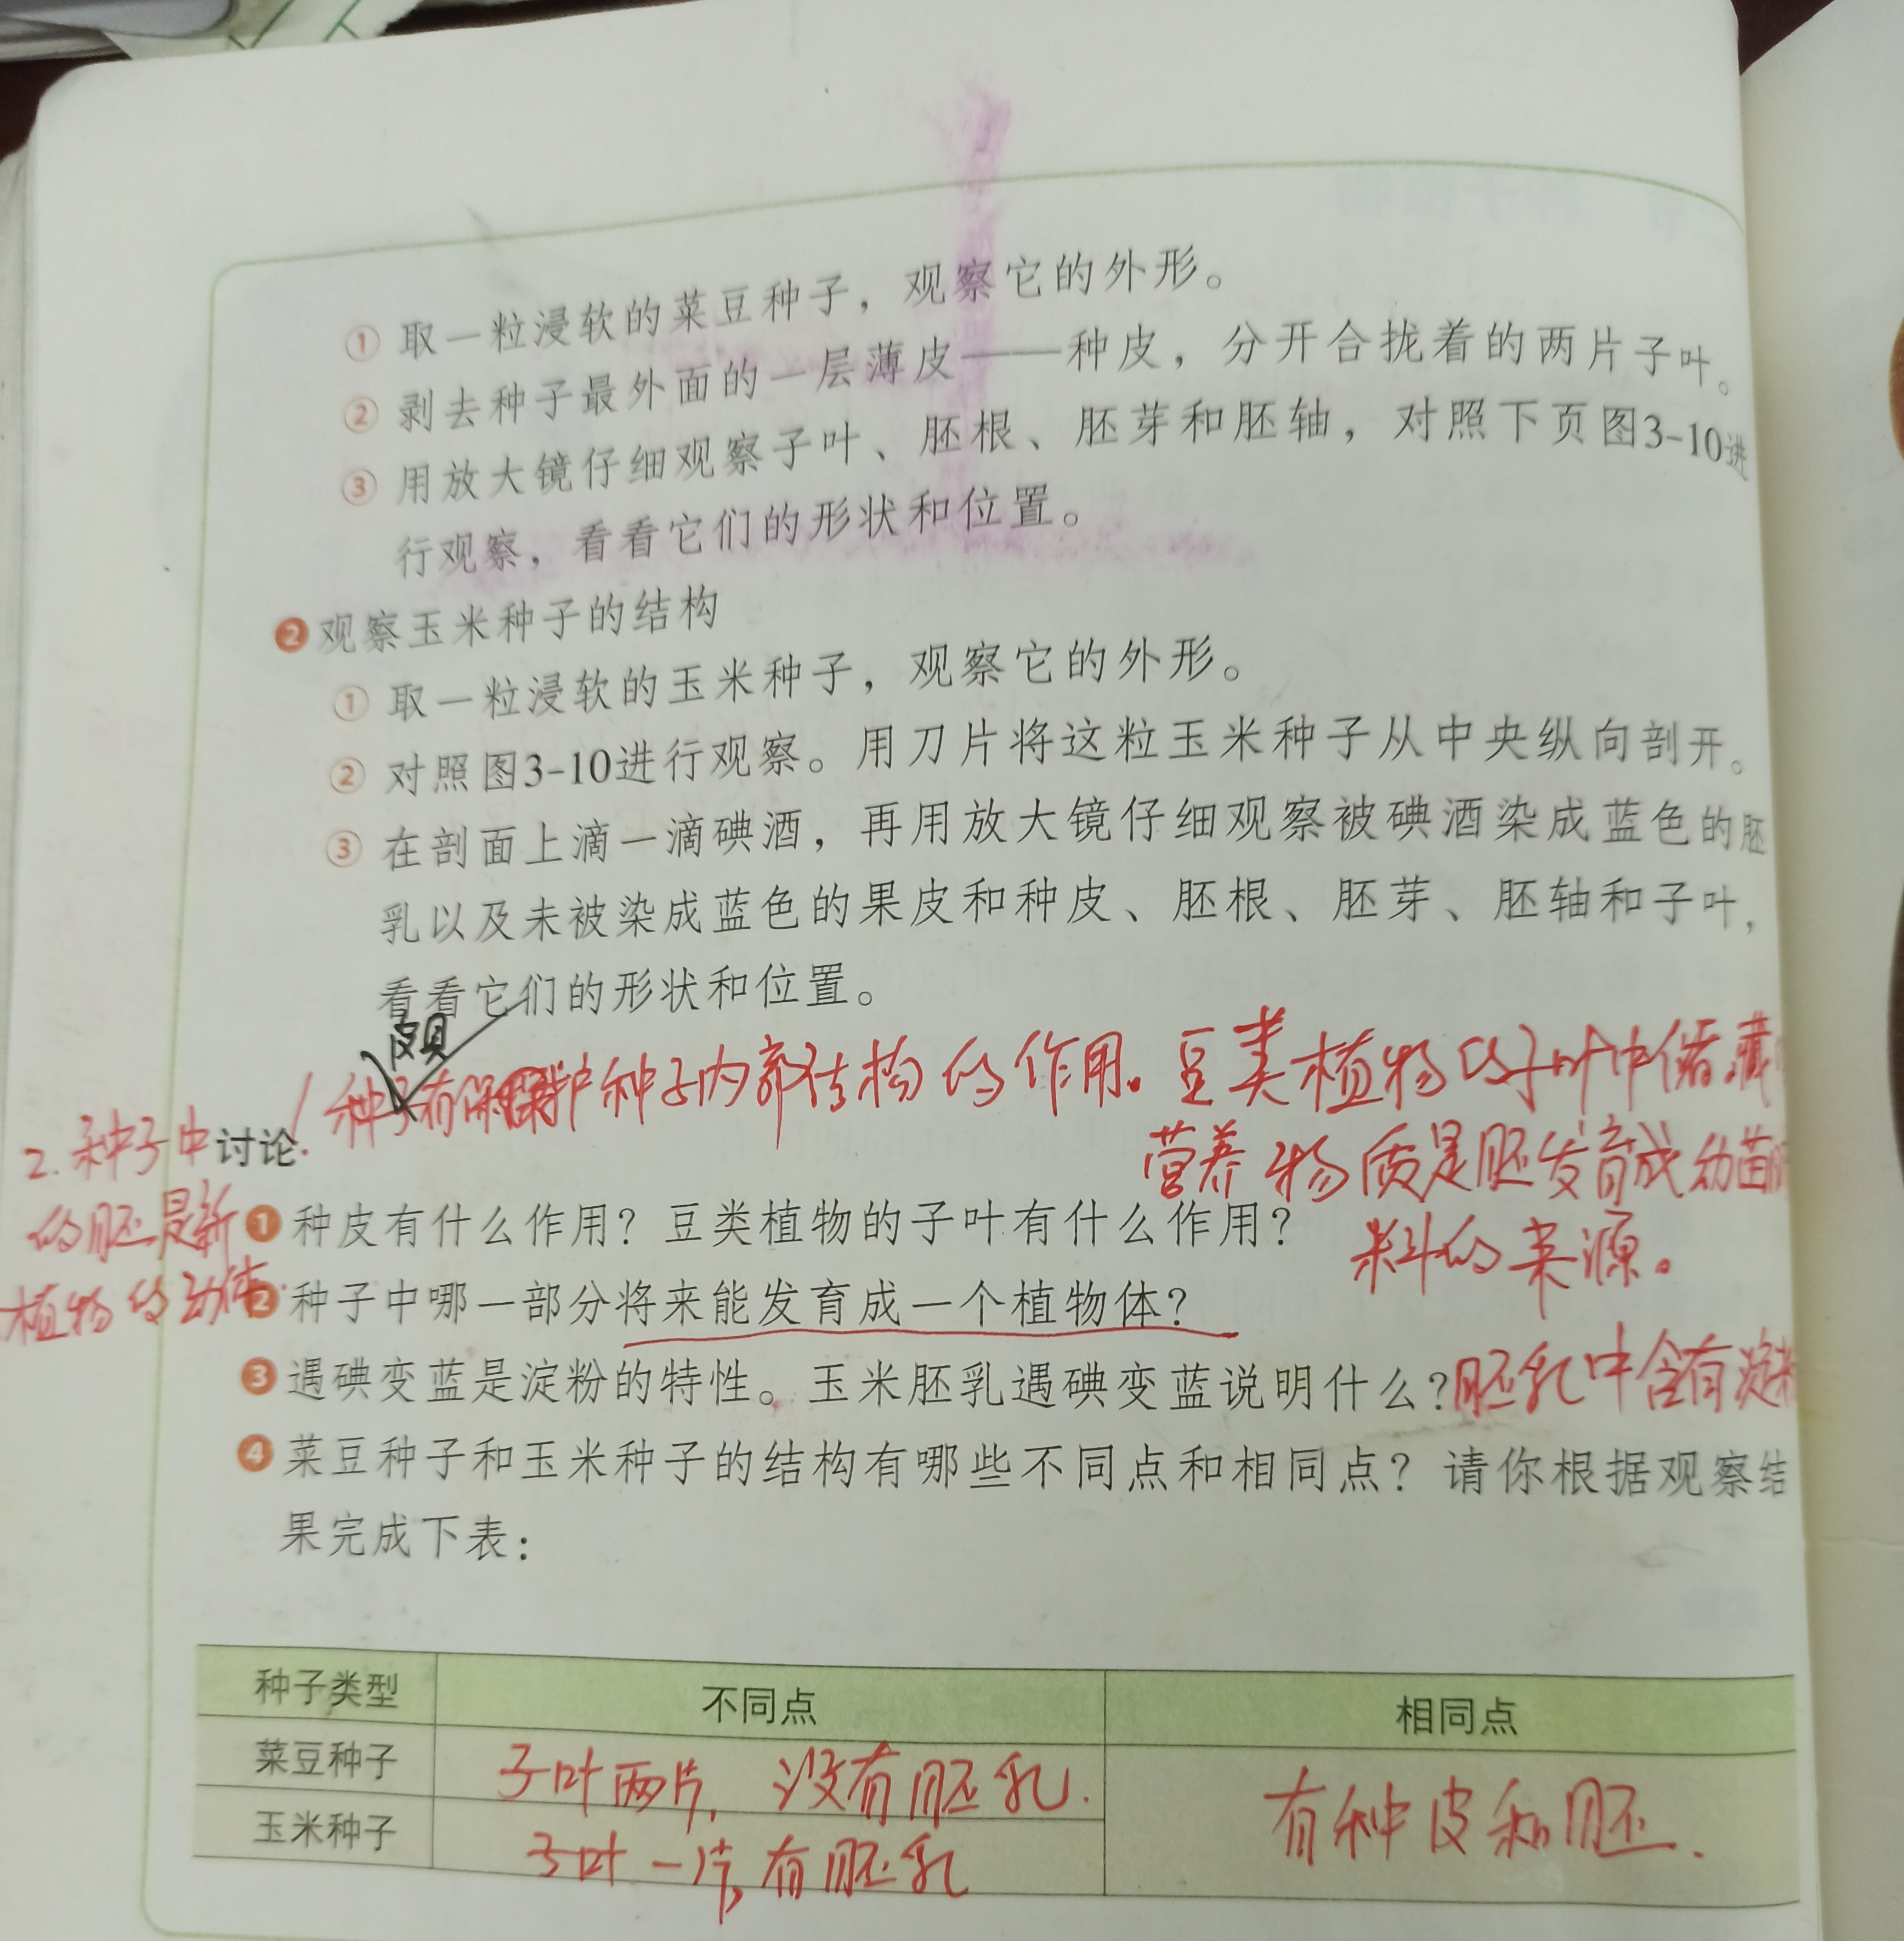 ① 取一粒浸软的菜豆种子，观察它的外形。
② 剥去种子最外面的一层薄皮——种皮，分开合拢着的两片子叶。
③ 用放大镜仔细观察子叶、胚根、胚芽和胚轴，对照下页图3-10进
行观察，看看它们的形状和位置。
❷观察玉米种子的结构
① 取一粒浸软的玉米种子，观察它的外形。
② 对照图3-10进行观察。用刀片将这粒玉米种子从中央纵向剖开。
③ 在剖面上滴一滴碘酒，再用放大镜仔细观察被碘酒染成蓝色的胚
乳以及未被染成蓝色的果皮和种皮、胚根、胚芽、胚轴和子叶，
看看它们的形状和位置。
1. 种子有保护种子内部结构的作用。豆类植物的子叶中储藏
营养物质是胚发育成幼苗
料的来源。
2. 种子中
的胚是新
植物的幼体.
讨论
❶ 种皮有什么作用？豆类植物的子叶有什么作用？
❷ 种子中哪一部分将来能发育成一个植物体？
❸ 遇碘变蓝是淀粉的特性。玉米胚乳遇碘变蓝说明什么？胚乳中含有淀粉
❹ 菜豆种子和玉米种子的结构有哪些不同点和相同点？请你根据观察结
果完成下表：
种子类型 不同点 相同点
菜豆种子 子叶两片，没有胚乳.
有种皮和胚.
玉米种子 子叶一片，有胚乳